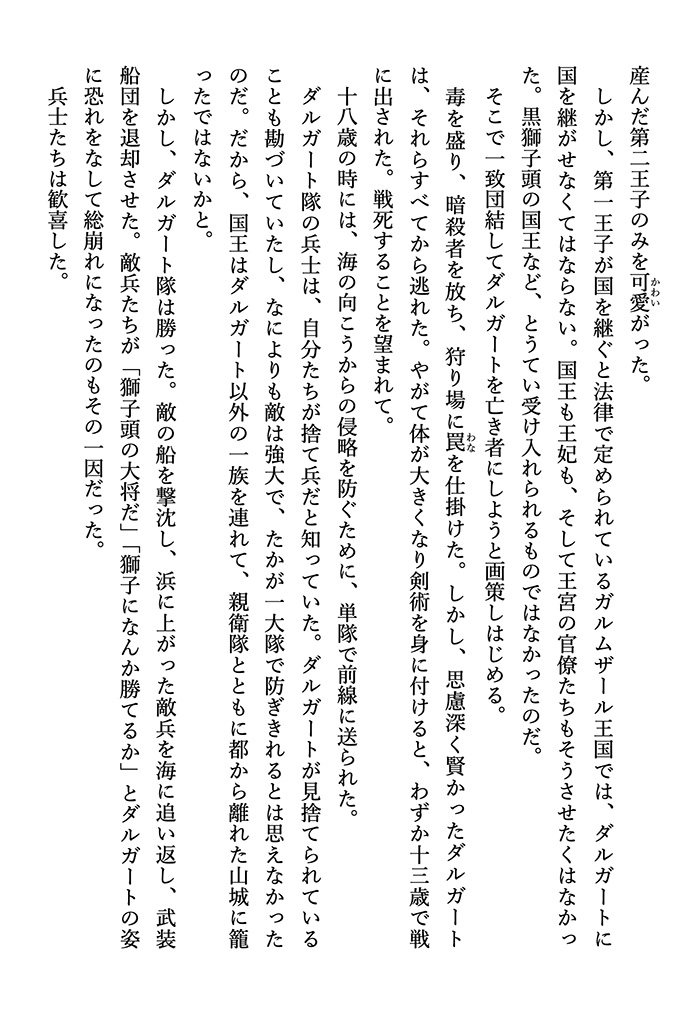 産んだ第二王子のみを可愛がった。
しかし、第一王子が国を継ぐと法律で定められているガルムザール王国では、ダルガートに
国を継がせなくてはならない。国王も王妃も、そして王宮の官僚たちもそうさせたくはなかっ
た。黒獅子頭の国王など、とうてい受け入れられるものではなかったのだ。
そこで一致団結してダルガートを亡き者にしようと画策しはじめる。
毒を盛り、暗殺者を放ち、狩り場に罠を仕掛けた。しかし、思慮深く賢かったダルガート
は、それらすべてから逃れた。やがて体が大きくなり剣術を身に付けると、わずか十三歳で戦
に出された。戦死することを望まれて。
十八歳の時には、海の向こうからの侵略を防ぐために、単隊で前線に送られた。
ダルガート隊の兵士は、自分たちが捨て兵だと知っていた。ダルガートが見捨てられている
ことも勘づいていたし、なによりも敵は強大で、たかが一大隊で防ぎきれるとは思えなかった
のだ。だから、国王はダルガート以外の一族を連れて、親衛隊とともに都から離れた山城に籠
ったではないかと。
しかし、ダルガート隊は勝った。敵の船を撃沈し、浜に上がった敵兵を海に追い返し、武装
船団を退却させた。敵兵たちが「獅子頭の大将だ」「獅子になんか勝てるか」とダルガートの姿
に恐れをなして総崩れになったのもその一因だった。
兵士たちは歓喜した。